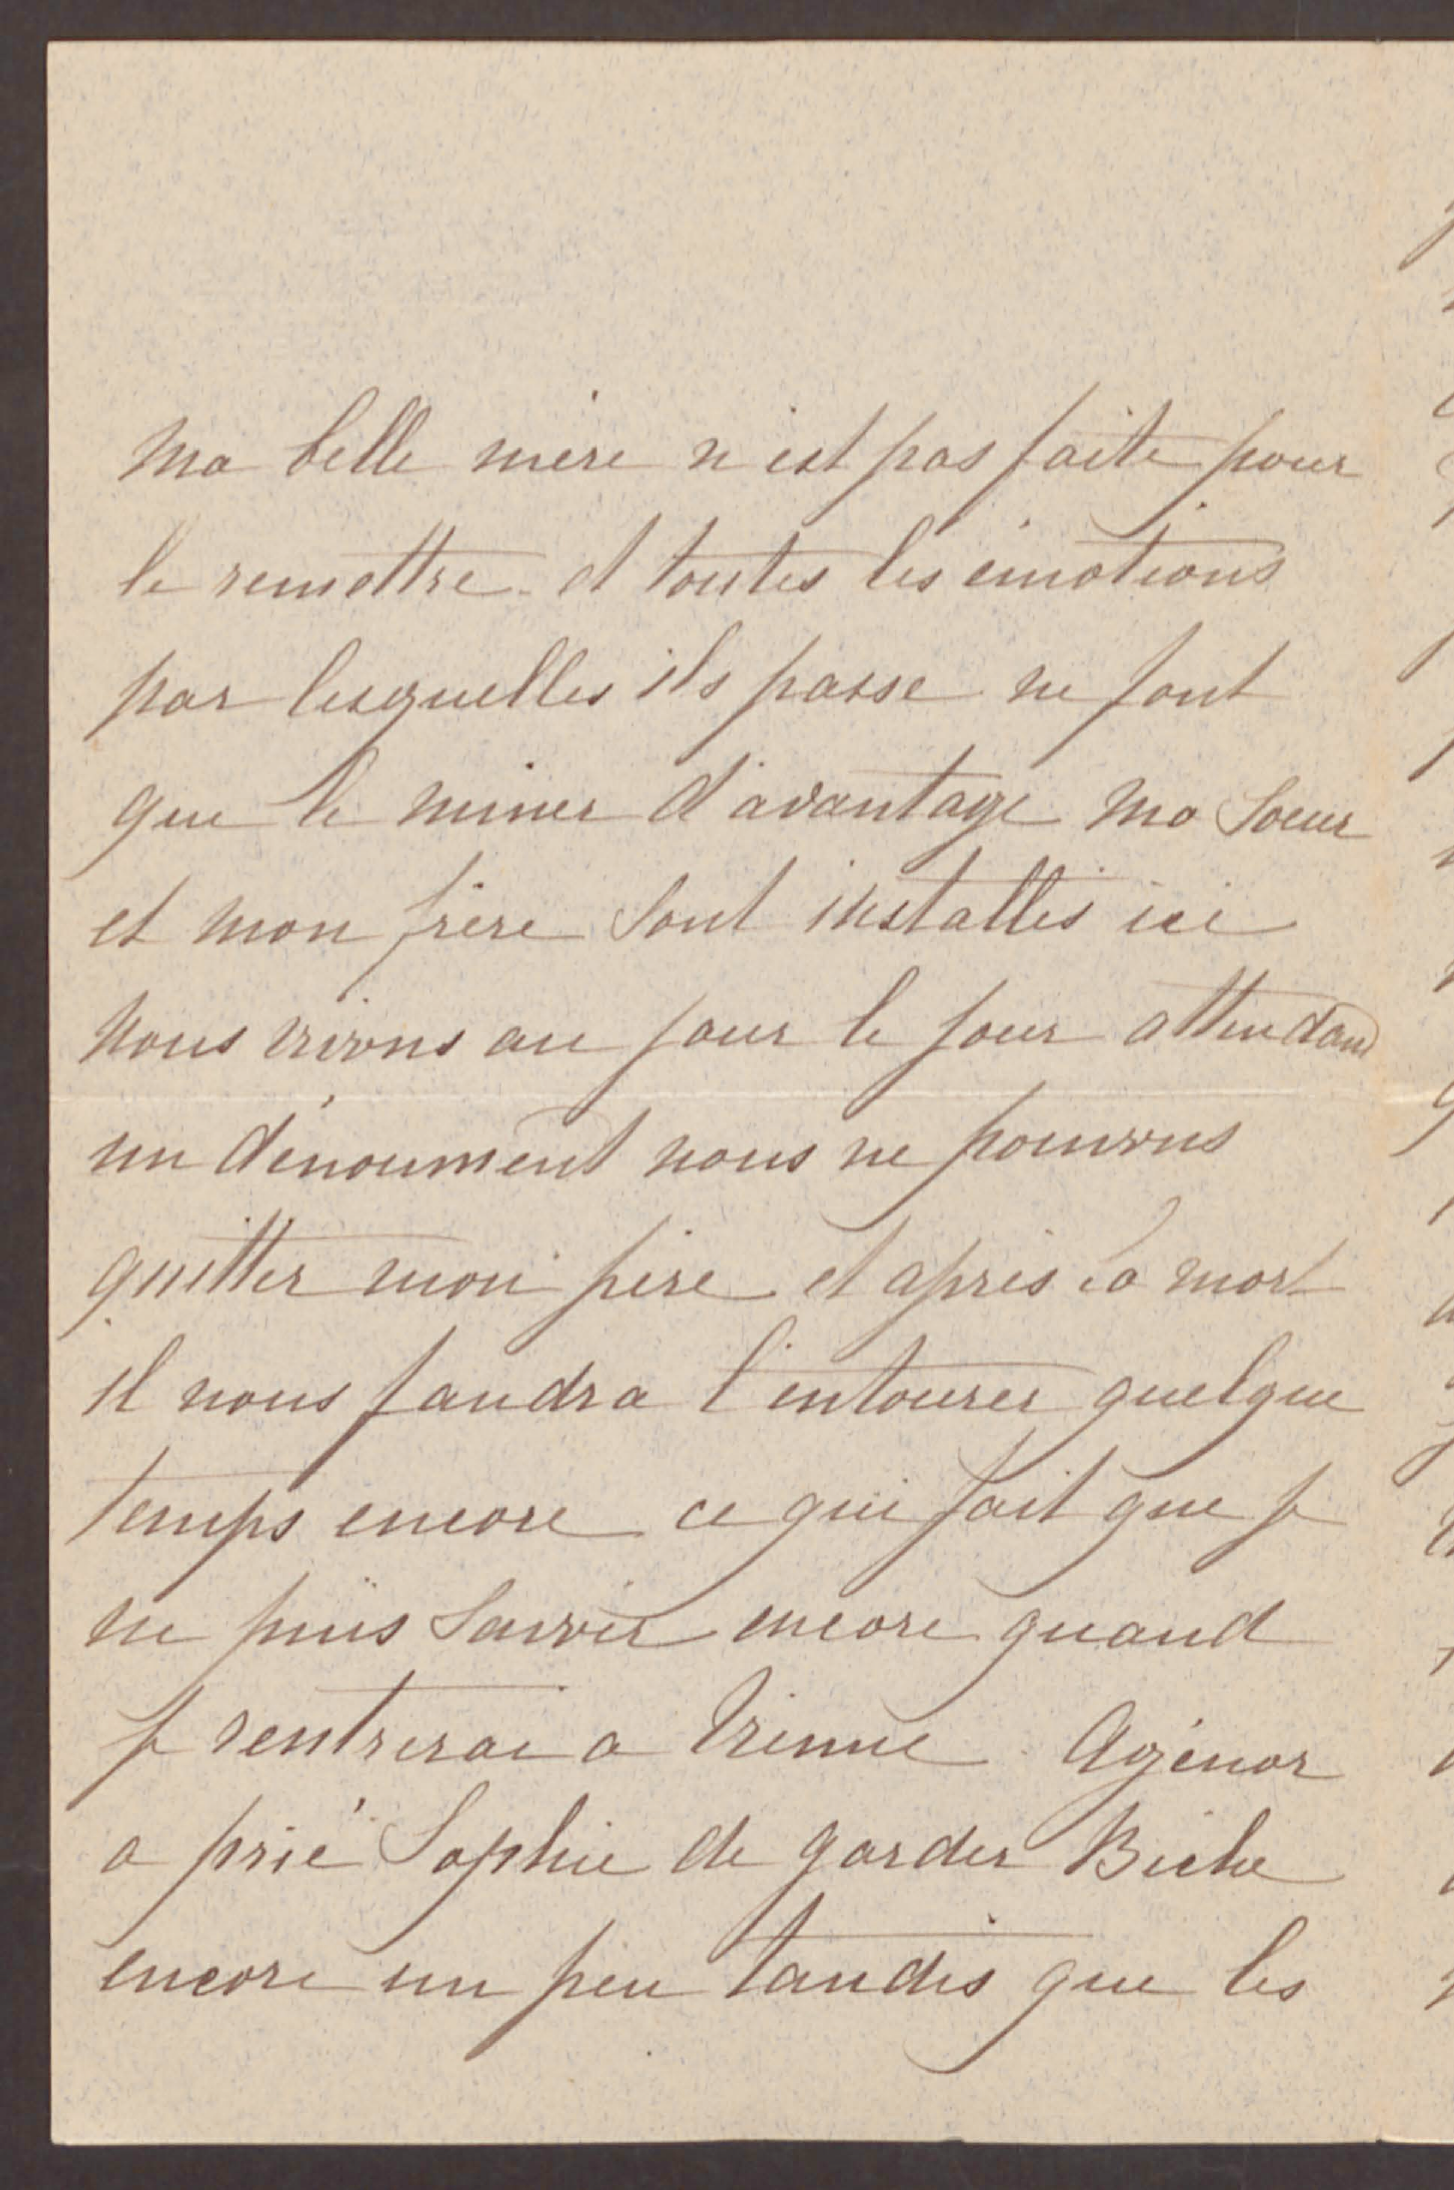 Ma belle mère n'est pas faite pour
le remettre et toutes les émotions
par lesquelles ils passe ne font
que le miner d'avantage Ma Soeur
et mon frère Sont installés ici
Nous vivons au jour le jour attendant
un dénoument nous ne pouvons
quitter mon père et après la mort
il nous faudra l'entourer quelque
temps encore ce qui fait que je
ne puis Savoir encore quand
je rentrerai a Vienne Agénor
a prié Sophie de garder Biche
encore un peu tandis que les